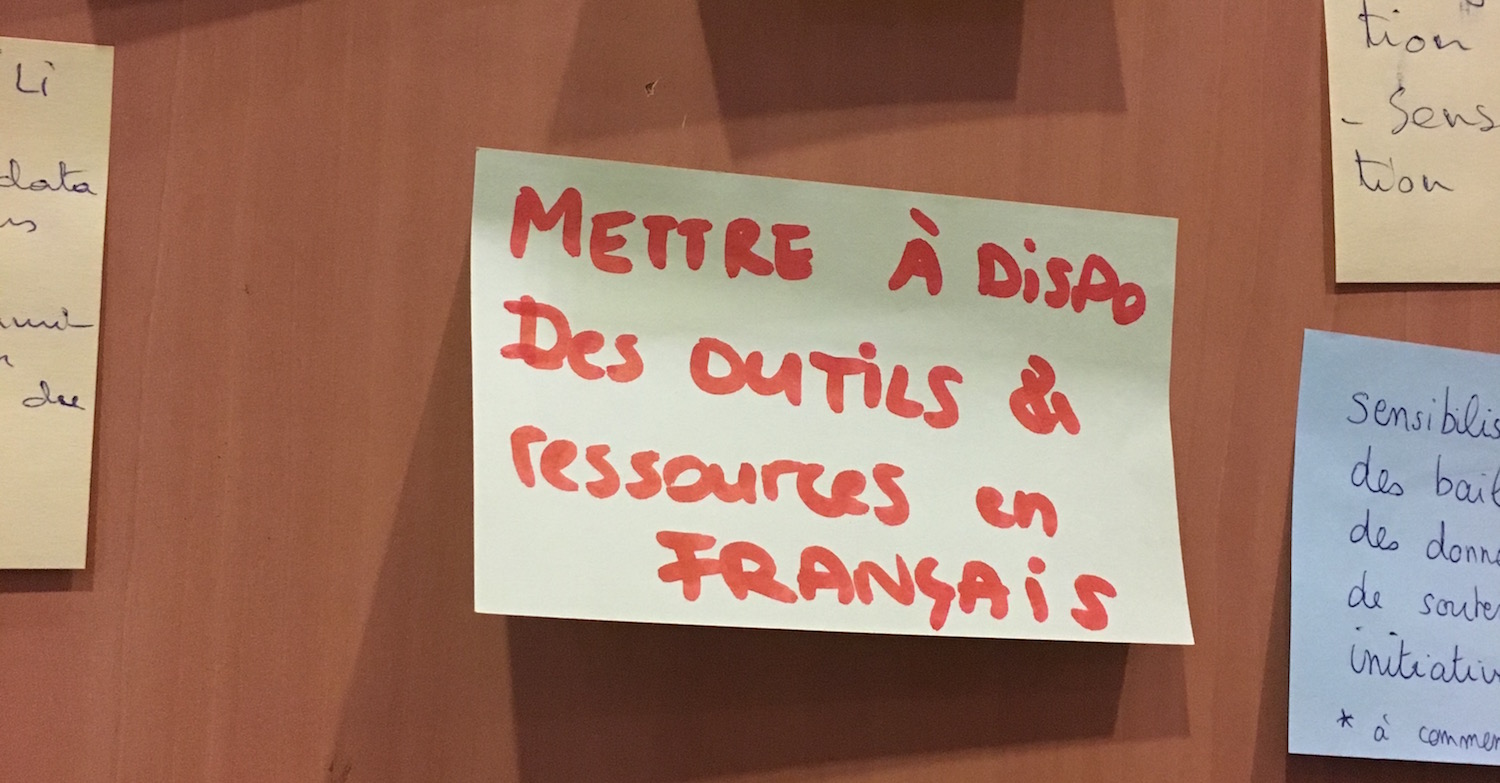 Li
data
du
METTRE À DISPO
Des OUTiLS &
ressources en
FRANÇAiS
tion
- Sens
tion
sensibilis
des bail
des donn
de soute
initiativ
* à commen